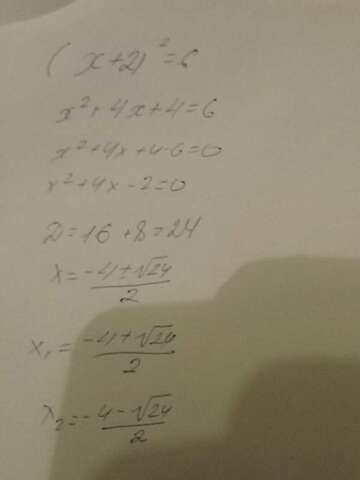 (x+2)²=6
x²+4x+4=6
x²+4x+4-6=0
x²+4x-2=0
D=16+8=24
x=(-4±√24)/2
x₁=(-4+√24)/2
x₂=(-4-√24)/2